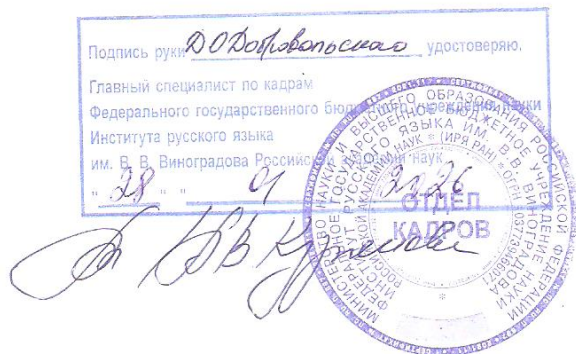 Подпись руки Д О Добровольского удостоверяю.
Главный специалист по кадрам
Федерального государственного бюджетного учреждения науки
Института русского языка
им. В. В. Виноградова Российской академии наук
" 28 " " 01 2026
ОТДЕЛ
КАДРОВ
МИНИСТЕРСТВО НАУКИ И ВЫСШЕГО ОБРАЗОВАНИЯ РОССИЙСКОЙ ФЕДЕРАЦИИ
ФЕДЕРАЛЬНОЕ ГОСУДАРСТВЕННОЕ БЮДЖЕТНОЕ УЧРЕЖДЕНИЕ НАУКИ
ИНСТИТУТ РУССКОГО ЯЗЫКА ИМ. В.В. ВИНОГРАДОВА
РОССИЙСКОЙ АКАДЕМИИ НАУК * (ИРЯ РАН) * ОГРН